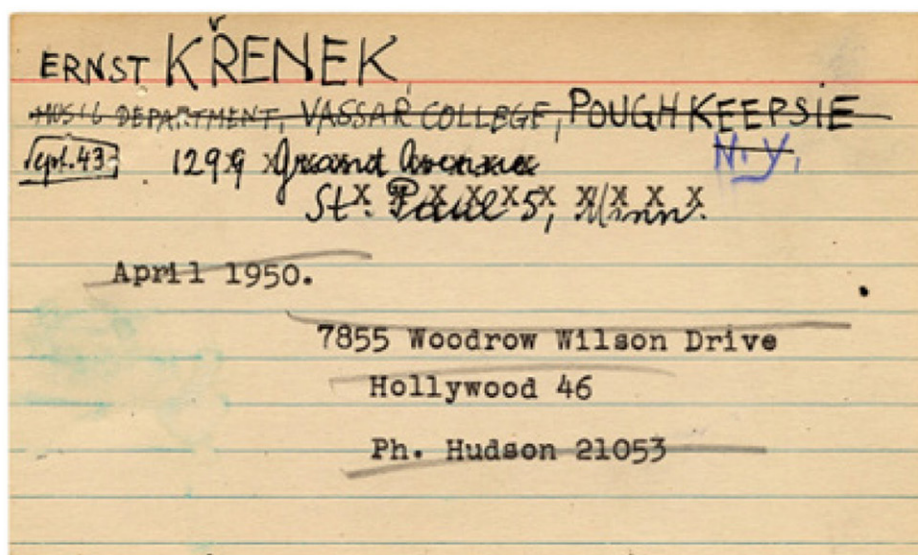 ERNST KŘENEK
MUSIC DEPARTMENT, VASSAR COLLEGE, POUGHKEEPSIE
N.Y.
Sept. 43 1299 Grand Avenue
St. Paul 5, Minn.
April 1950.
7855 Woodrow Wilson Drive
Hollywood 46
Ph. Hudson 21053